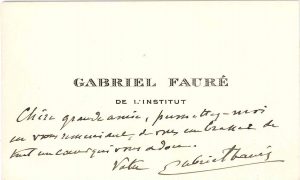 GABRIEL FAURÉ
DE L'INSTITUT
Chère grande amie, permettez-moi
en vous remerciant, de vous embrasser de
tout un cœur qui vous adore.
Votre Gabriel Fauré